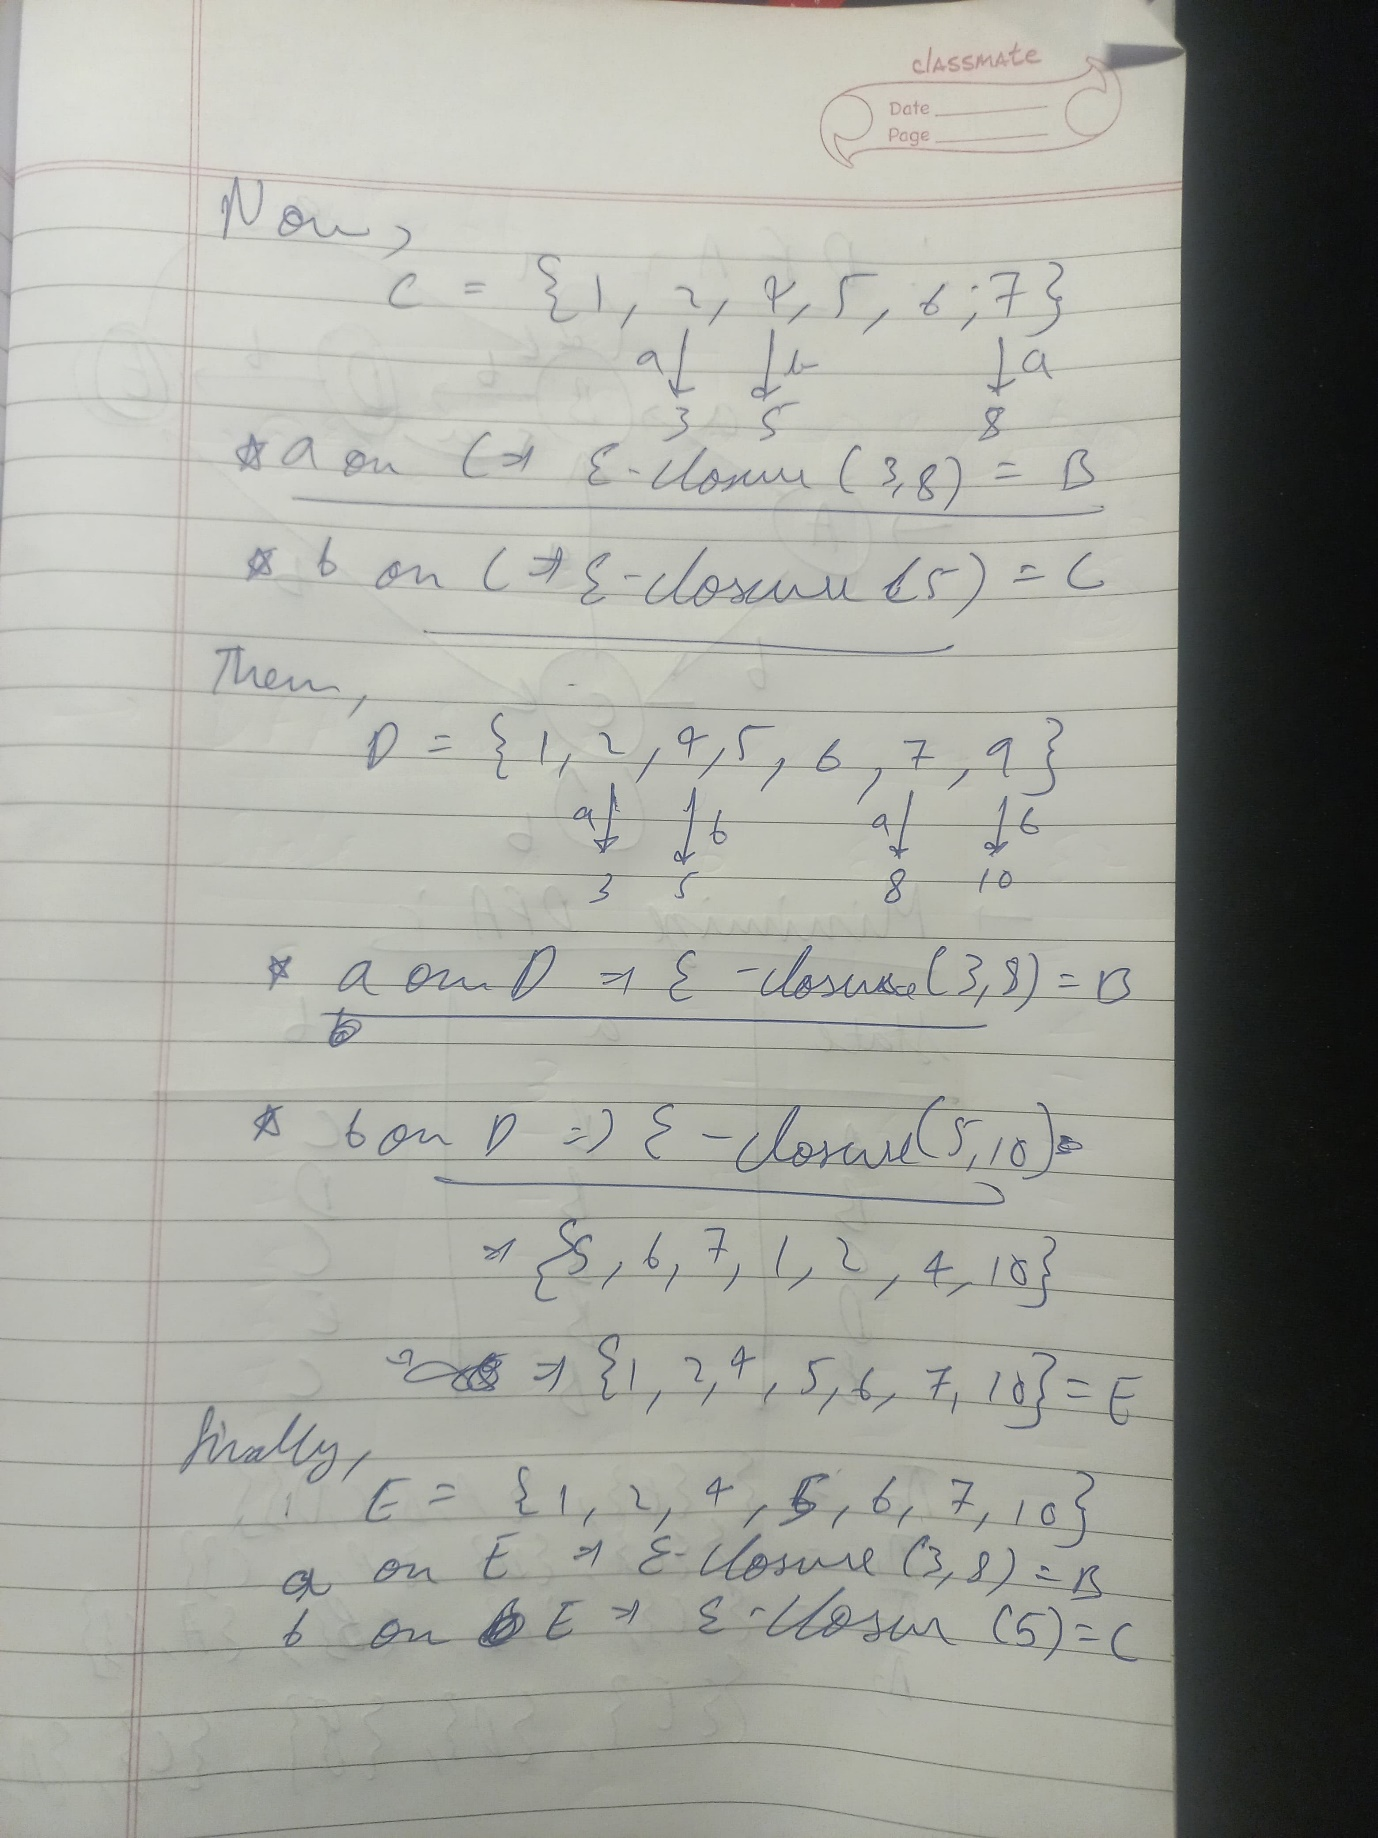 classmate
Date
Page
Now,
C = {1, 2, 4, 5, 6, 7}
a↓ ↓b ↓a
3 5 8
* a on C ⇒ ε-closure (3,8) = B
* b on C ⇒ ε-closure (5) = C
Then,
D = {1, 2, 4, 5, 6, 7, 9}
a↓ ↓b a↓ ↓b
3 5 8 10
* a on D ⇒ ε-closure (3,8) = B
* b on D ⇒ ε-closure (5,10)
⇒ {5, 6, 7, 1, 2, 4, 10}
⇒ {1, 2, 4, 5, 6, 7, 10} = E
finally,
E = {1, 2, 4, 5, 6, 7, 10}
a on E ⇒ ε-closure (3,8) = B
b on E ⇒ ε-closur (5) = C